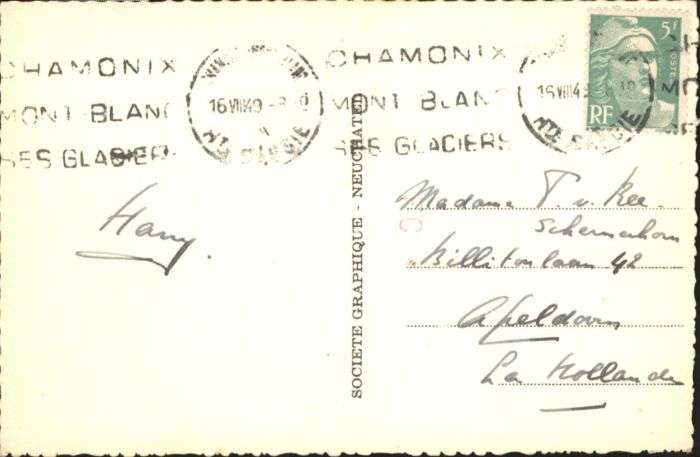 CHAMONIX
MONT-BLANC
SES GLACIERS
16 VII 49
HTE SAVOIE
CHAMONIX
MONT-BLANC
SES GLACIERS
HTE SAVOIE
5F
RF
SOCIETE GRAPHIQUE - NEUCHATEL
Madame T. v. Ree
Schermerhorn
Billitonlaan 42
Apeldoorn
La Hollande